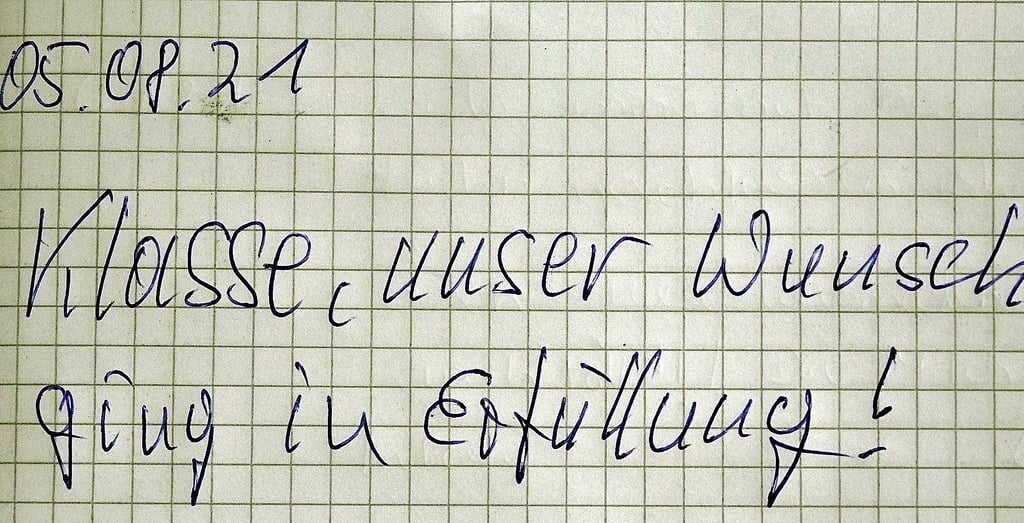 05.08.21
Klasse, unser Wunsch
ging in Erfüllung!